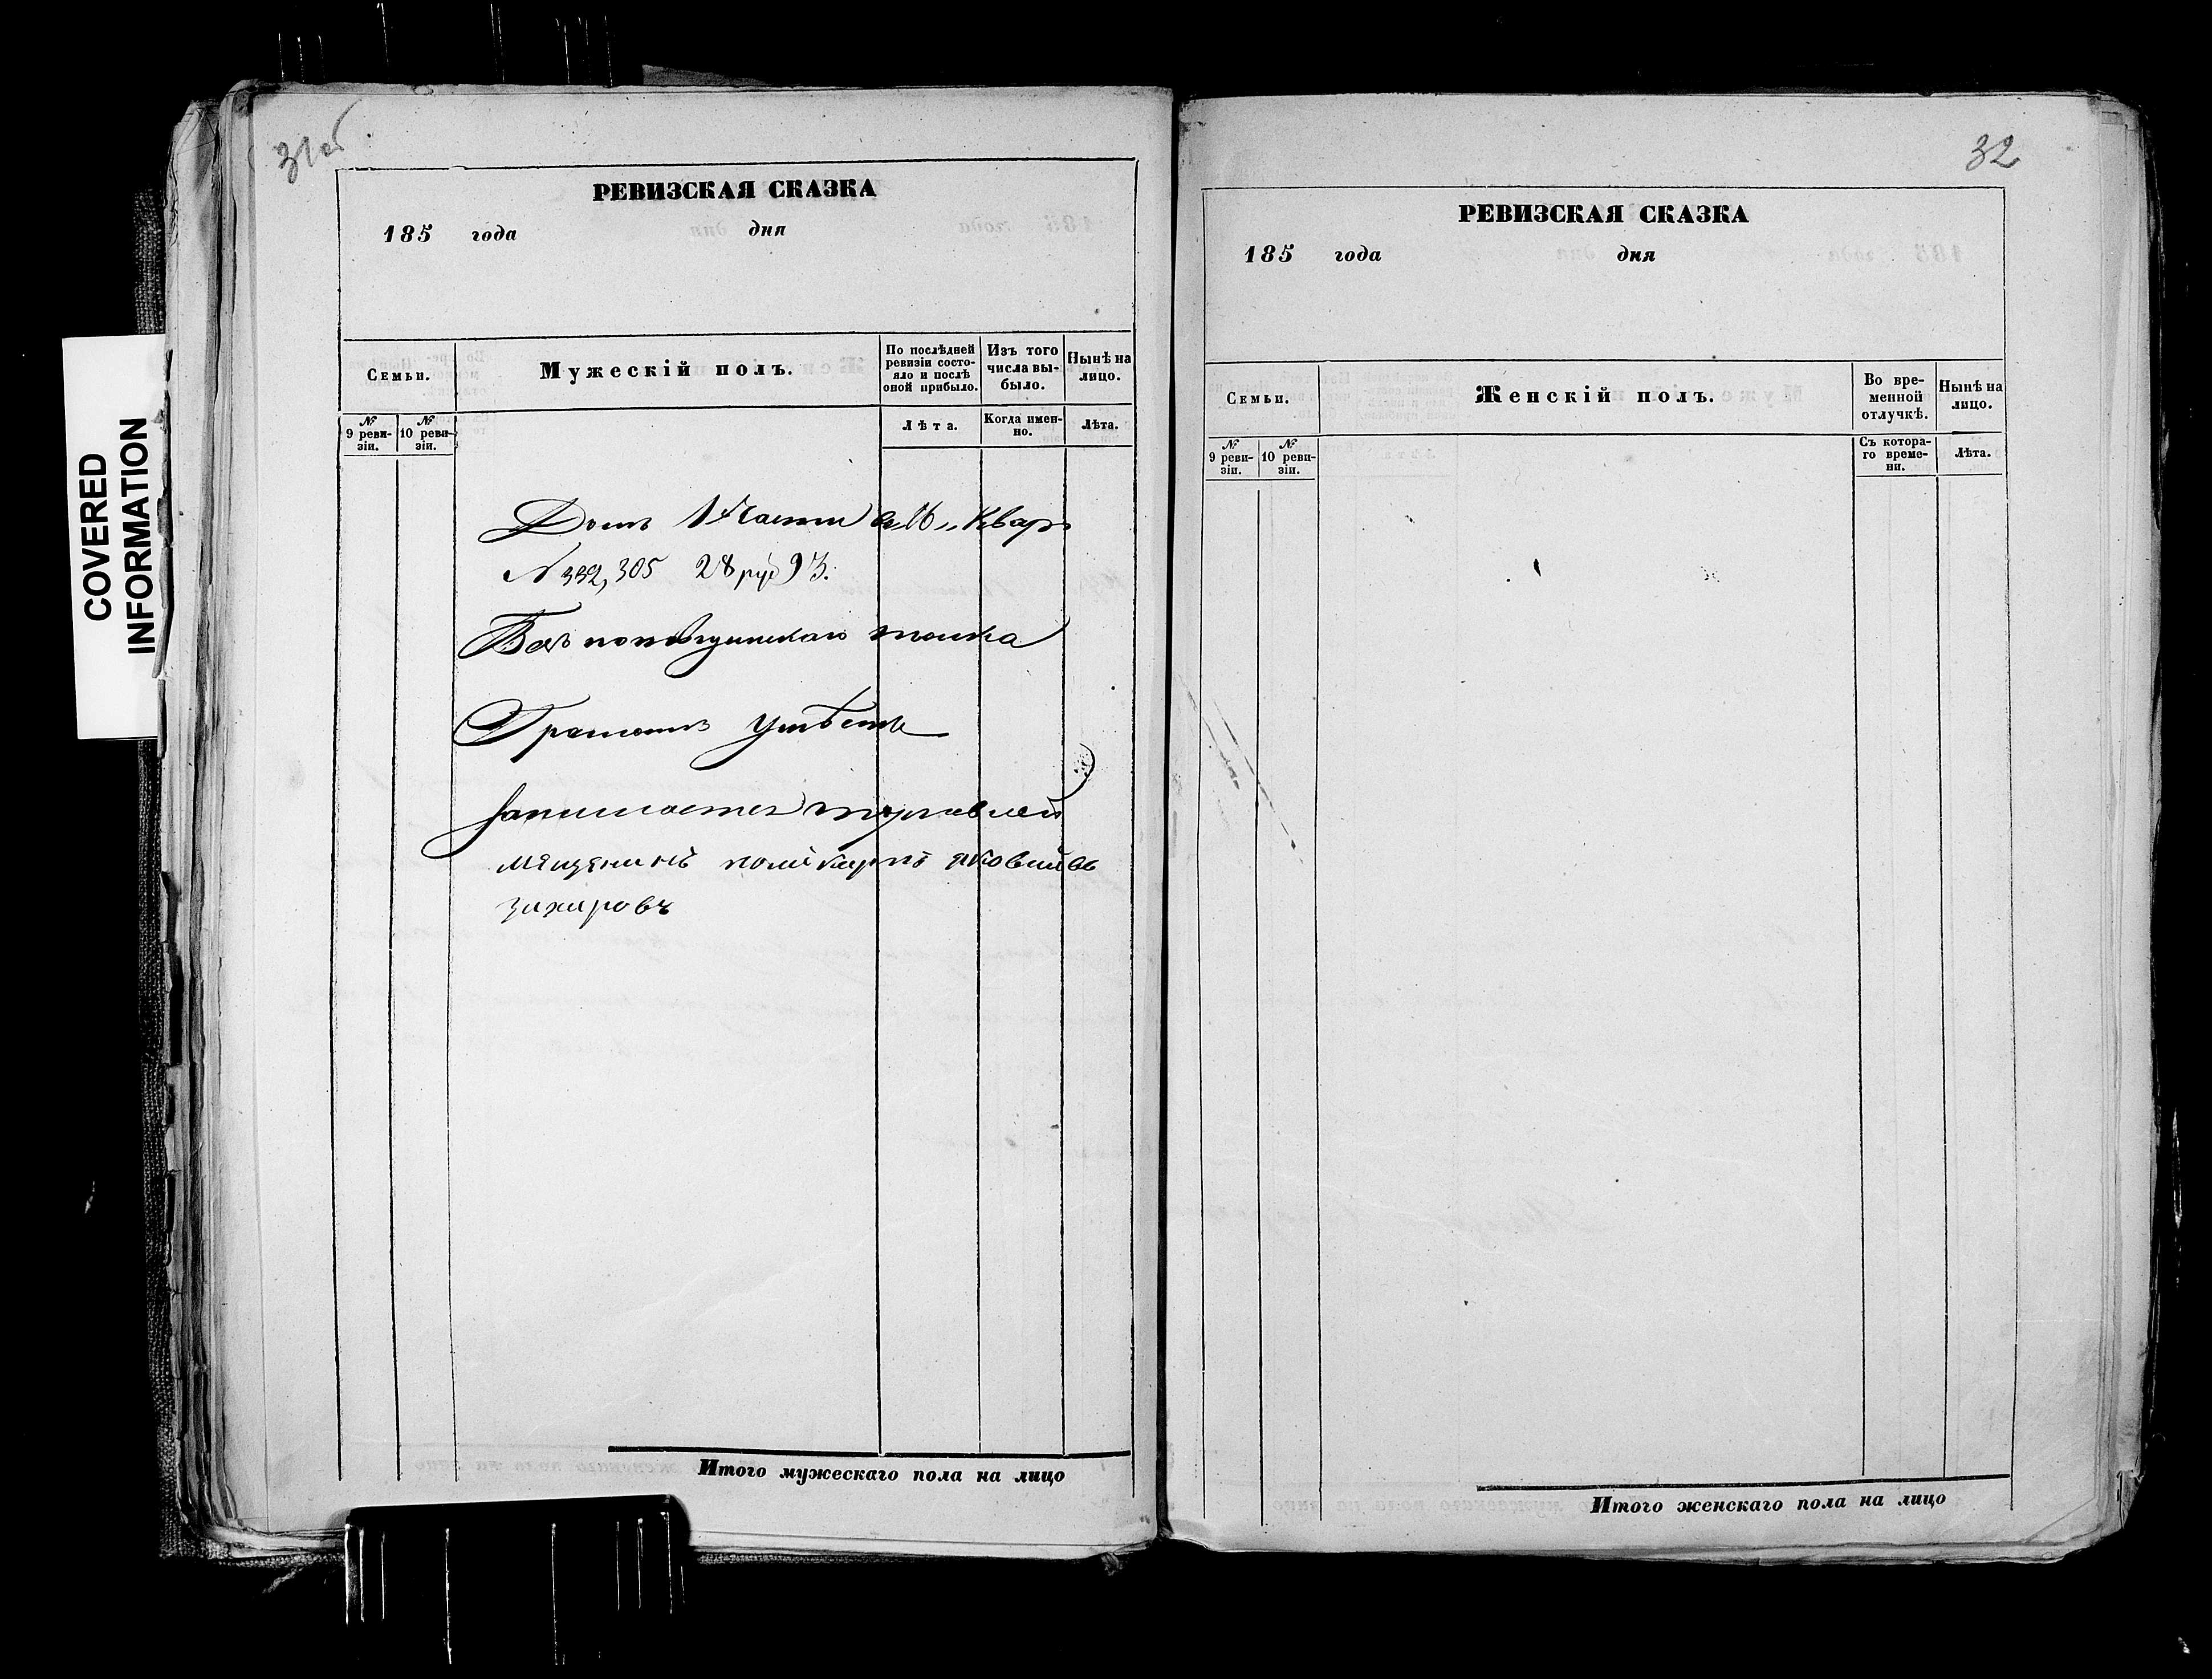 COVERED
INFORMATION
31об
РЕВИЗСКАЯ СКАЗКА
185 года дня
Семьи.
Мужескій полъ.
По послѣдней
ревизіи состо-
яло и послѣ
оной прибыло.
Изъ того
числа вы-
было.
Нынѣ на
лицо.
№
9 реви-
зіи.
№
10 реви-
зіи.
Лѣта.
Когда имен-
но.
Лѣта.
Домъ 1 Части Квар
N 332, 305 28 руб 93.
толка
Грамотѣ умѣетъ
Занимается торговлей
мещенинъ поликарпъ яковлевъ
захаровъ
Итого мужескаго пола на лицо
32
РЕВИЗСКАЯ СКАЗКА
185 года дня
Семьи.
Женскій полъ.
Во вре-
менной
отлучкѣ.
Нынѣ на
лицо.
№
9 реви-
зіи.
№
10 реви-
зіи.
Съ котора-
го време-
ни.
Лѣта.
Итого женскаго пола на лицо